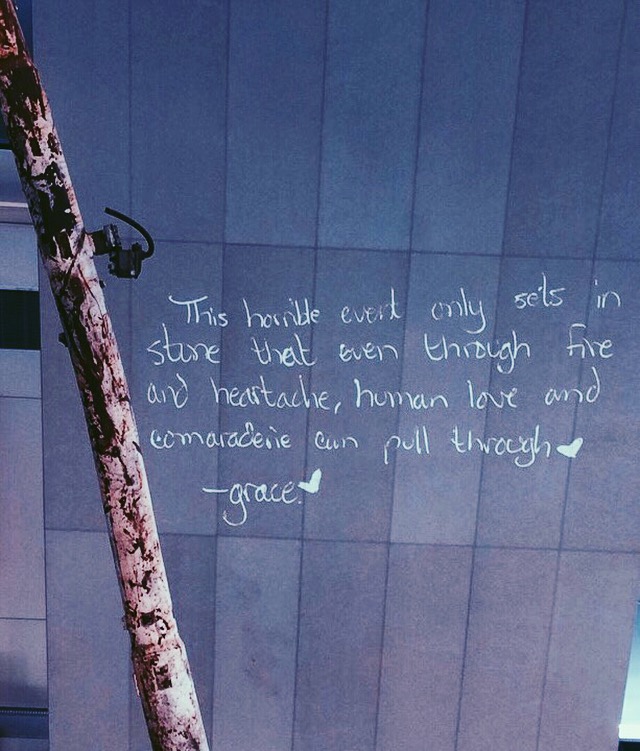 This horrible event only sets in
stone that even through fire
and heartache, human love and
comaraderie can pull through♥
-grace.♥